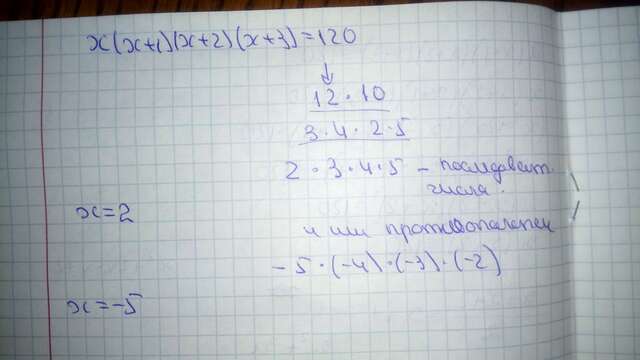 x(x+1)(x+2)(x+3)=120
↓
12·10
3·4·2·5
2·3·4·5 – последоват.
числа.
x=2
и или противополож
-5·(-4)·(-3)·(-2)
x=-5